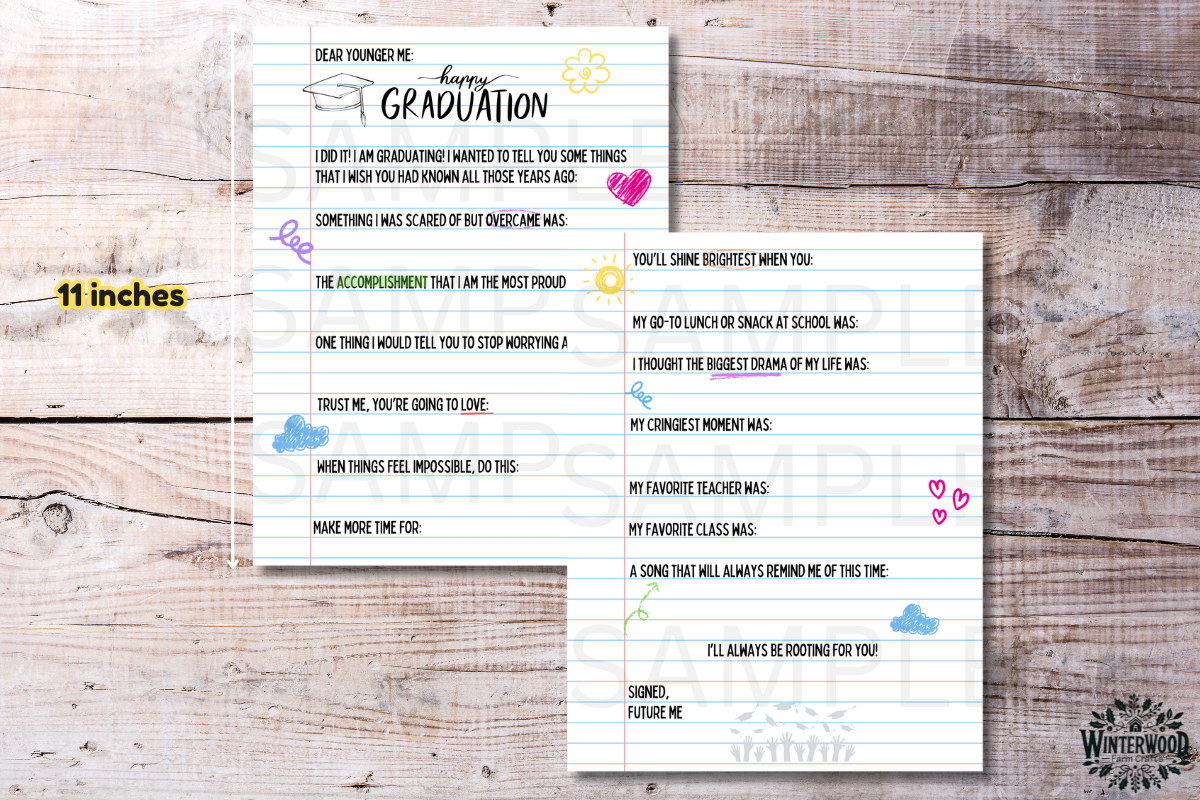 11 inches
DEAR YOUNGER ME:
happy
GRADUATION
I DID IT! I AM GRADUATING! I WANTED TO TELL YOU SOME THINGS
THAT I WISH YOU HAD KNOWN ALL THOSE YEARS AGO:
SOMETHING I WAS SCARED OF BUT OVERCAME WAS:
THE ACCOMPLISHMENT THAT I AM THE MOST PROUD
ONE THING I WOULD TELL YOU TO STOP WORRYING A
TRUST ME, YOU'RE GOING TO LOVE:
WHEN THINGS FEEL IMPOSSIBLE, DO THIS:
MAKE MORE TIME FOR:
SAMPLE
SAMPLE
SAMP
YOU'LL SHINE BRIGHTEST WHEN YOU:
MY GO-TO LUNCH OR SNACK AT SCHOOL WAS:
I THOUGHT THE BIGGEST DRAMA OF MY LIFE WAS:
MY CRINGIEST MOMENT WAS:
MY FAVORITE TEACHER WAS:
MY FAVORITE CLASS WAS:
A SONG THAT WILL ALWAYS REMIND ME OF THIS TIME:
I'LL ALWAYS BE ROOTING FOR YOU!
SIGNED,
FUTURE ME
SAMPLE
SAMPLE
SAMPLE
WINTERWOOD
Farm Crafts